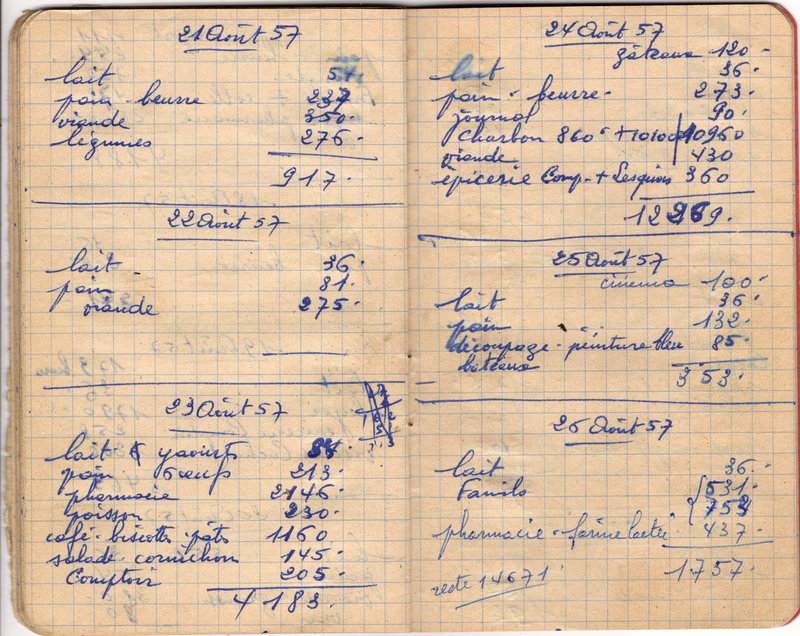 21 Août 57
lait 54
pain beurre 237
viande 350
légumes 276
917
22 Août 57
lait 36
pain 81
viande 275
23 Août 57
lait 4 yaourts 84
pain 6 oeufs 213
pharmacie 2146
poisson 230
café biscottes pâtes 1160
salade cornichon 145
Comptoir 205
4183
24 Août 57
gâteaux 120
lait 36
pain beurre 273
journal 90
Charbon 860 + 10100 10960
viande 430
épicerie Comp. + Lesquins 360
12269
25 Août 57
cinema 100
lait 36
pain 132
découpage peinture bleu 85
bateaux
353
26 Août 57
lait 36
Famils 531
752
pharmacie farine lactée 437
reste 14671 1757